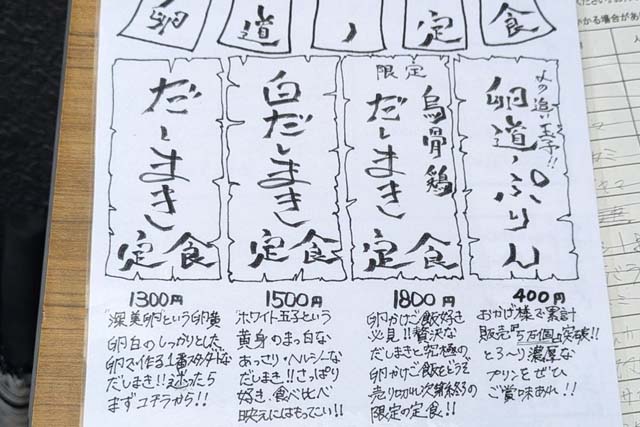 卵道ノ定食
だしまき
定食
1300円
"深美卵"という卵黄
卵白のしっかりとした
卵で作る1番スタンダードな
だしまき!!迷ったら
まずコチラから!!
白だしまき
定食
1500円
"ホワイト玉子"という
黄身のまっ白な
あっさり・ヘルシーな
だしまき!!さっぱり
好き、食べ比べ
映えにはもってこい!!
限定
烏骨鶏
だしまき
定食
1800円
卵かけご飯好き
必見!!贅沢な
だしまきと究極の
卵かけご飯をどうぞ
売り切れ次第終了の
限定の定食!!
追い玉子!!
卵道ノぷりん
400円
おかげ様で累計
販売
5万個突破!!
とろ〜り濃厚な
プリンをぜひ
ご賞味あれ!!
かる場合があ